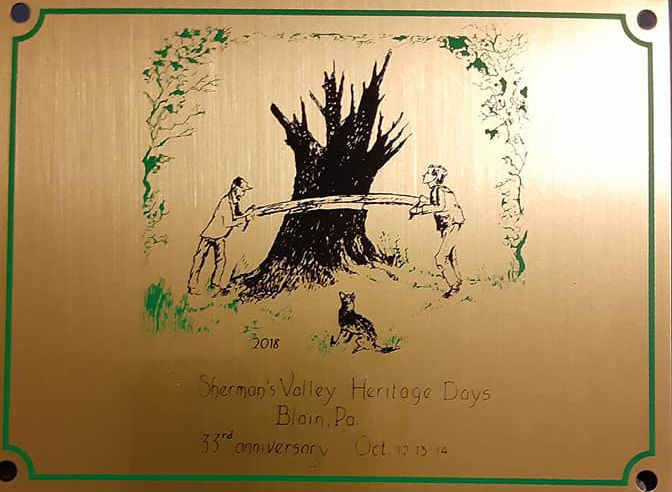 2018
Sherman's Valley Heritage Days
Blain, Pa.
33rd anniversary Oct. 12 13-14